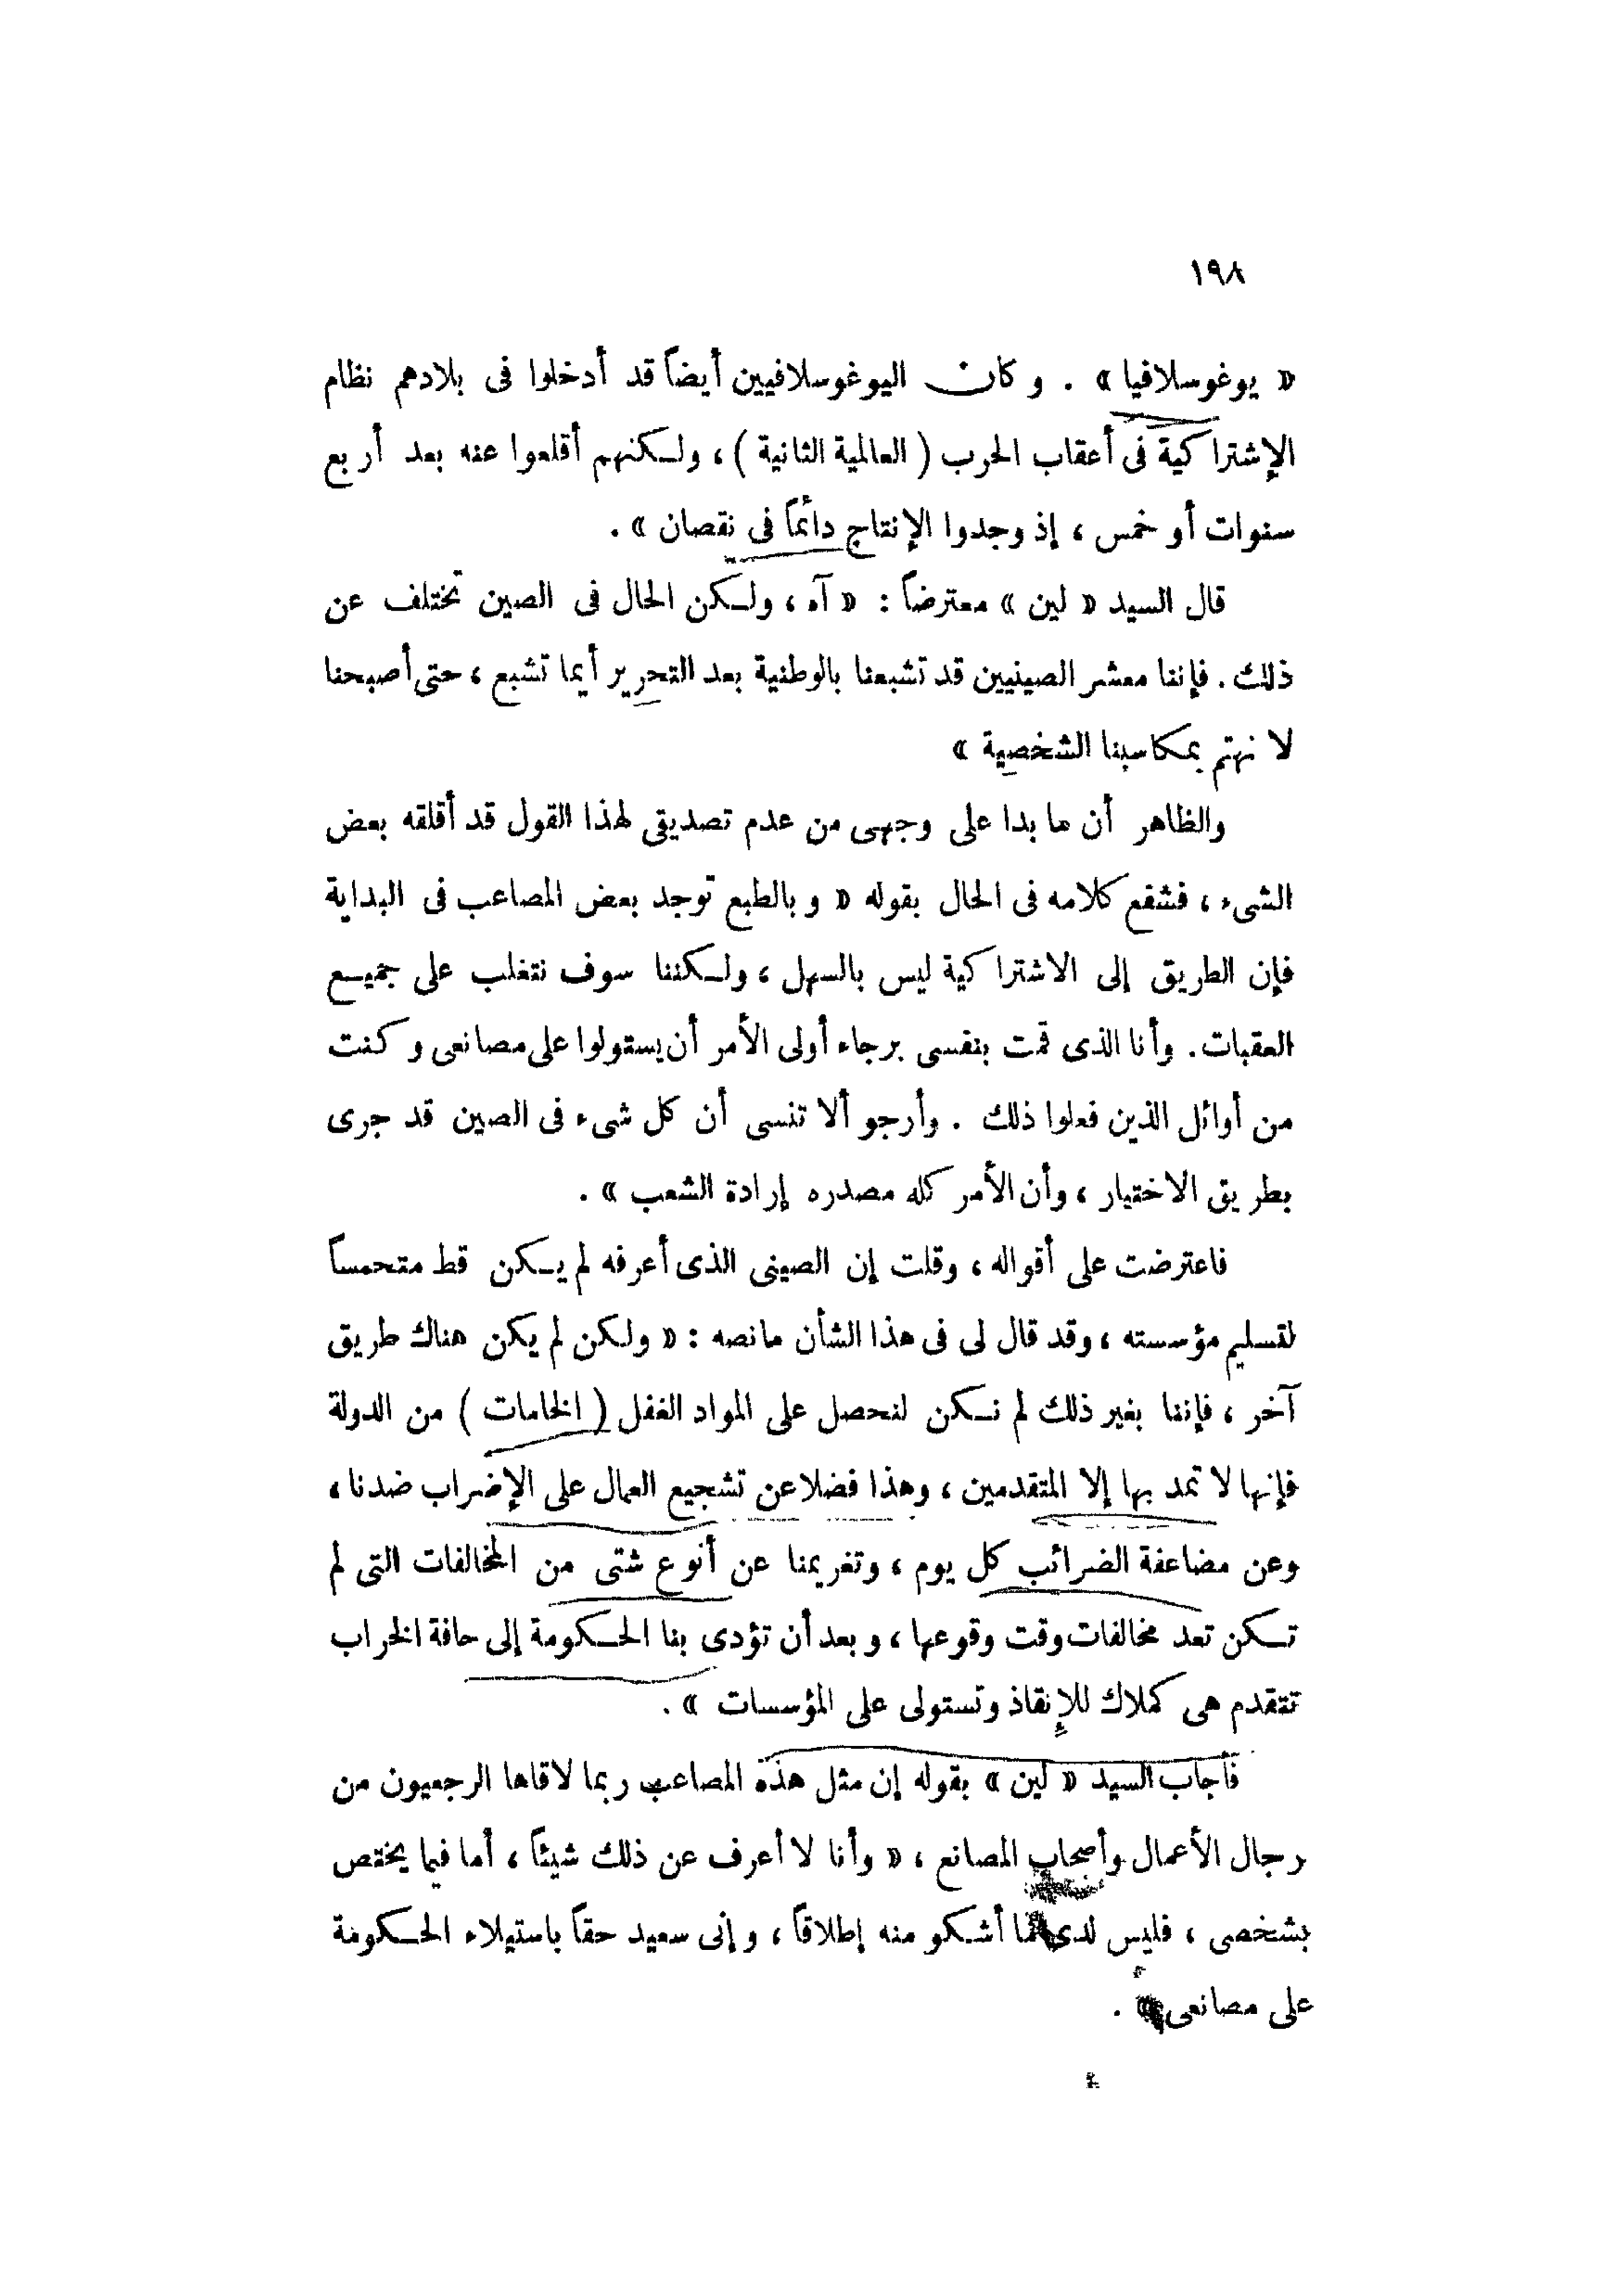 ١٩٨
« يوغوسلافيا » . وكان اليوغوسلافيين أيضاً قد أدخلوا فى بلادهم نظام
الإشتراكية فى أعقاب الحرب ( العالمية الثانية ) ، ولكنهم أقلعوا عنه بعد أربع
سنوات أو خمس ، إذ وجدوا الإنتاج دائماً فى نقصان » .
قال السيد « لين » معترضاً : « آه ، ولكن الحال فى الصين تختلف عن
ذلك . فإننا معشر الصينيين قد تشبعنا بالوطنية بعد التحرير أيما تشبع ، حتى أصبحنا
لا نهتم بمكاسبنا الشخصية »
والظاهر أن ما بدا على وجهى من عدم تصديقى لهذا القول قد أقلقه بعض
الشىء ، فشفع كلامه فى الحال بقوله « وبالطبع توجد بعض المصاعب فى البداية
فإن الطريق إلى الاشتراكية ليس بالسهل ، ولكننا سوف نتغلب على جميع
العقبات . وأنا الذى قمت بنفسى برجاء أولى الأمر أن يستولوا على مصانعى وكنت
من أوائل الذين فعلوا ذلك . وأرجو ألا تنسى أن كل شىء فى الصين قد جرى
بطريق الاختيار ، وأن الأمر كله مصدره إرادة الشعب » .
فاعترضت على أقواله ، وقلت إن الصينى الذى أعرفه لم يكن قط متحمساً
لتسليم مؤسسته ، وقد قال لى فى هذا الشأن مانصه : « ولكن لم يكن هناك طريق
آخر ، فإننا بغير ذلك لم نكن لنحصل على المواد الغفل ( الخامات ) من الدولة
فإنها لا تمد بها إلا المتقدمين ، وهذا فضلا عن تشجيع العمال على الإضراب ضدنا ،
وعن مضاعفة الضرائب كل يوم ، وتغريمنا عن أنوع شتى من المخالفات التى لم
تكن تعد مخالفات وقت وقوعها ، وبعد أن تؤدى بنا الحكومة إلى حافة الخراب
تتقدم هى كملاك للإنقاذ وتستولى على المؤسسات » .
فأجاب السيد « لين » بقوله إن مثل هذه المصاعب ربما لاقاها الرجعيون من
رجال الأعمال وأصحاب المصانع ، « وأنا لا أعرف عن ذلك شيئاً ، أما فيما يختص
بشخصى ، فليس لدى ما أشكو منه إطلاقاً ، وإنى سعيد حقاً باستيلاء الحكومة
على مصانعى » .